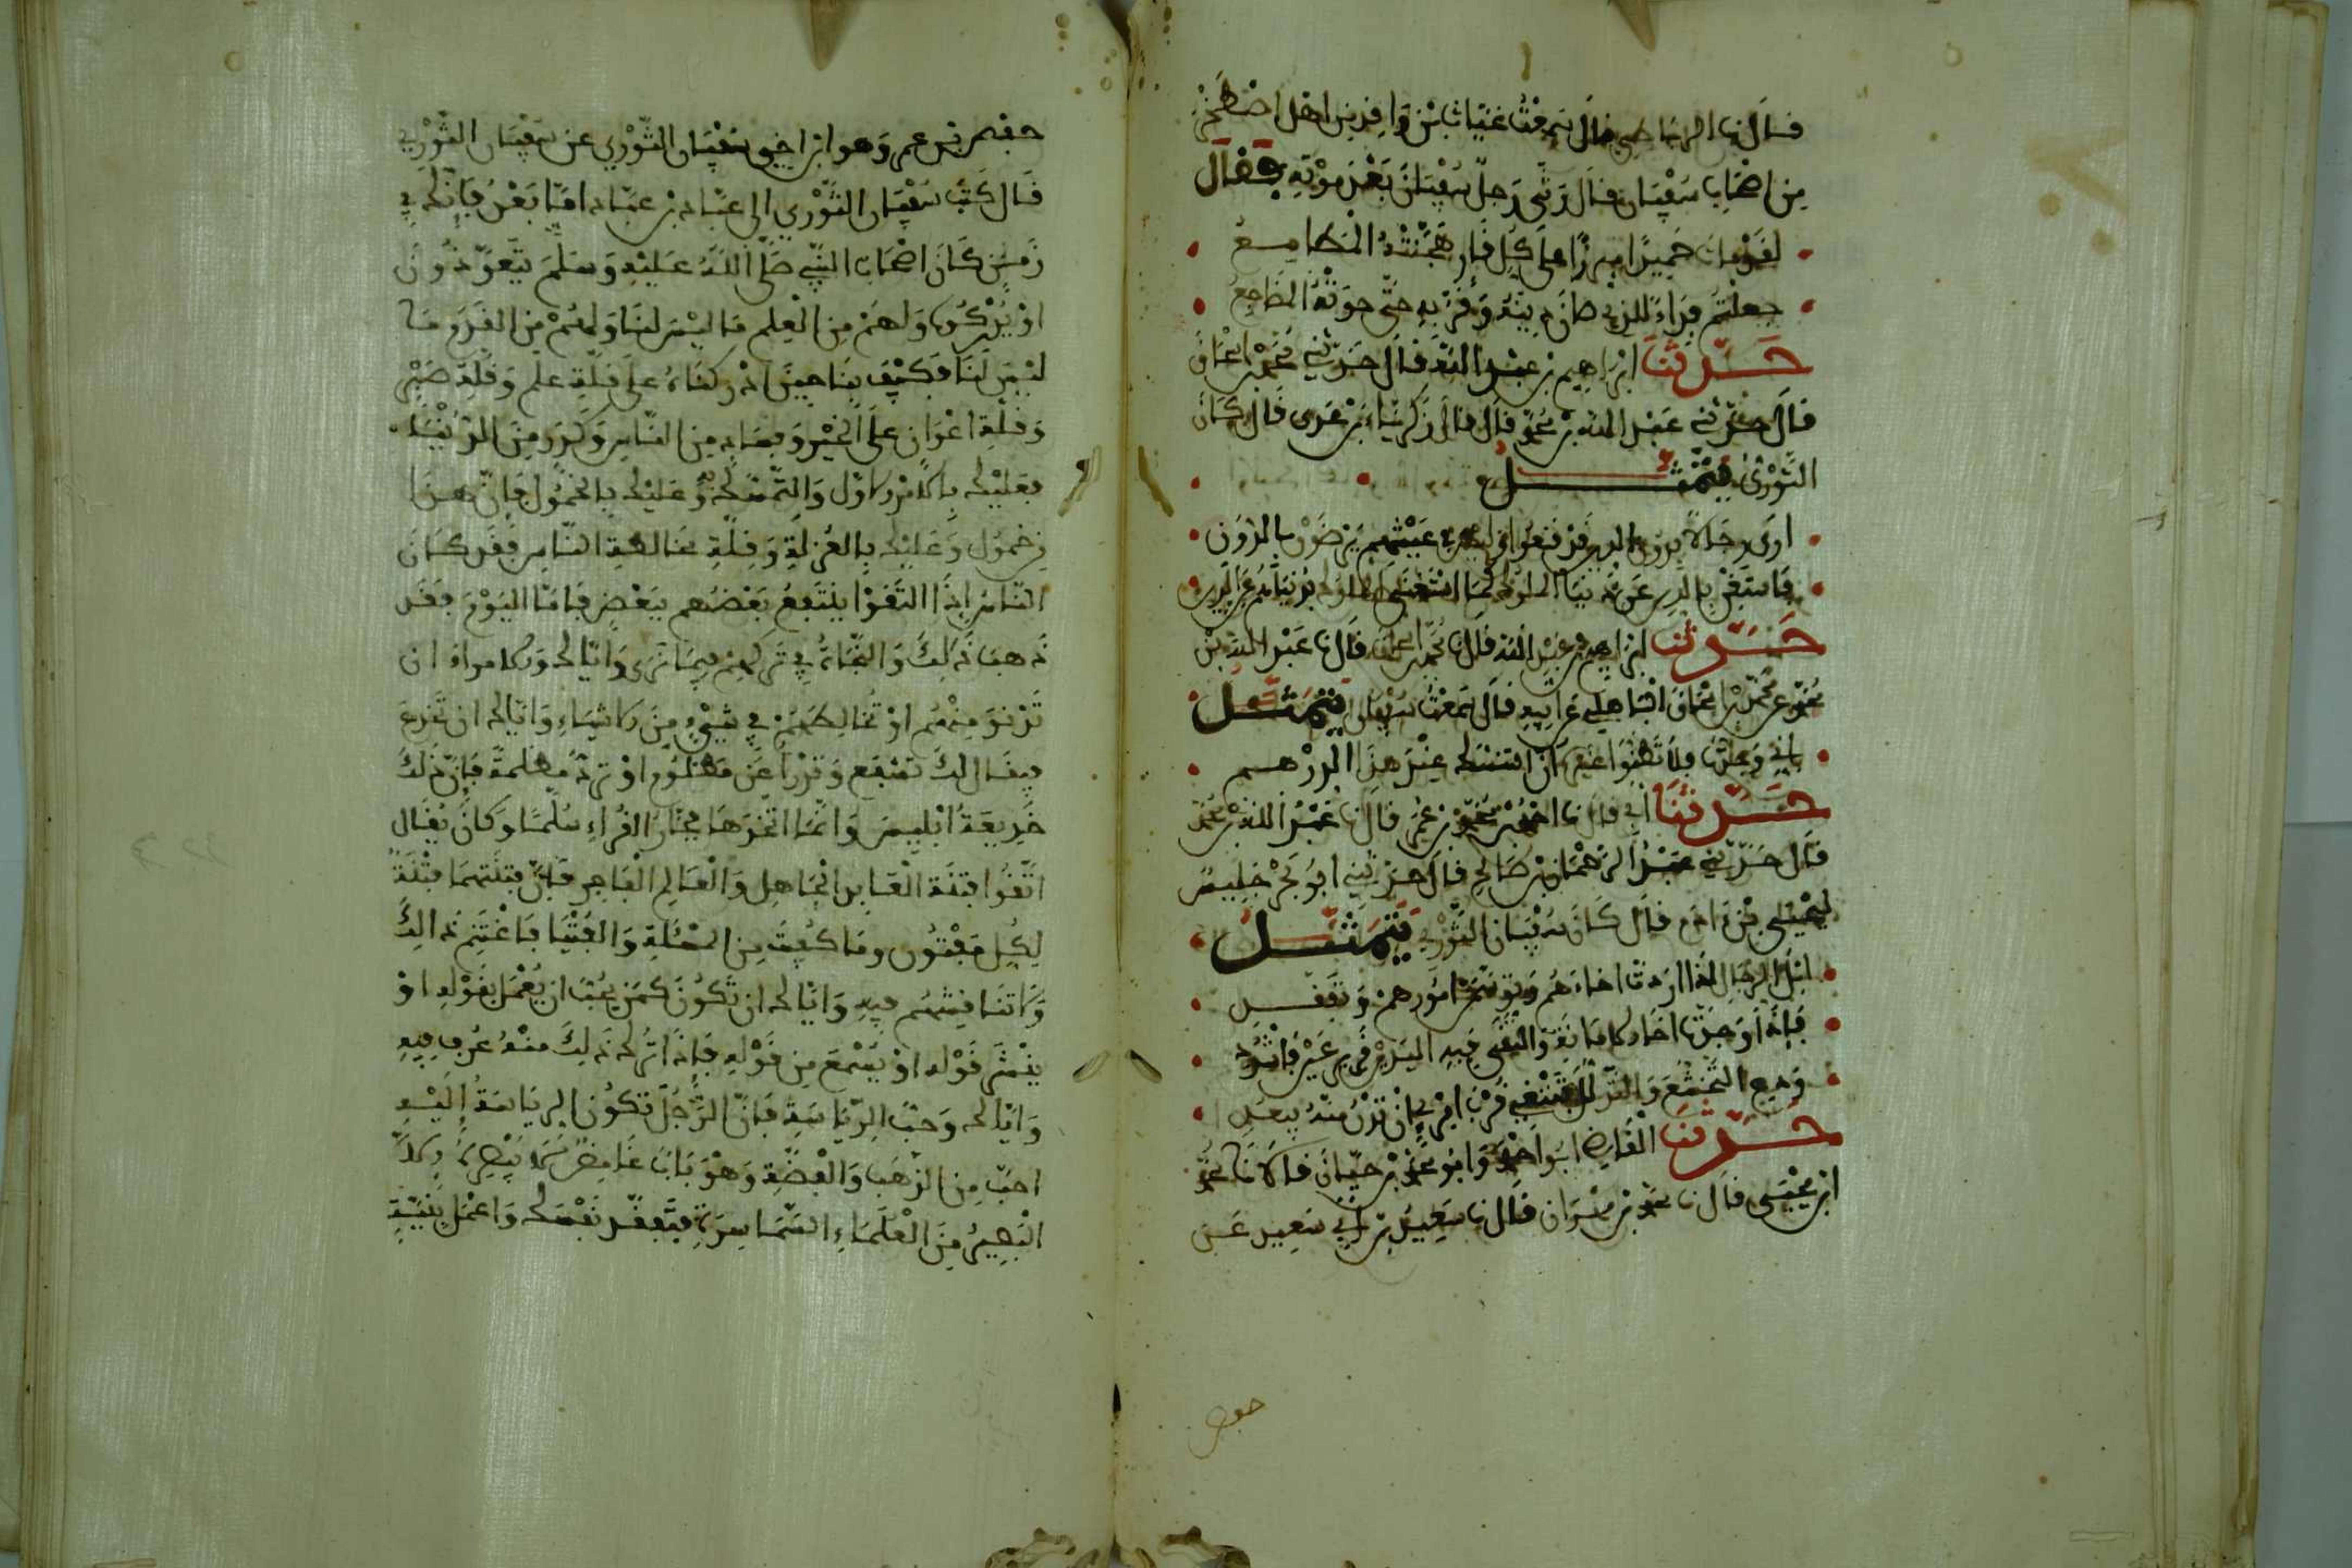 قال نا الرياطي قال سمعت غياث بن واقد من اهل اصطخر
من اصحاب سفيان قال رثى رجل سفيان بعد موته فقال
لقد مات سفيان حميدا مبرزا على كل قار هجنته المطامع
جعلتم فداء للذي صان دينه وفر به حتى حوته المضاجع
حدثنا ابراهيم بن عبد الله قال حدثني محمد بن اسحاق
قال حدثني عبد الله بن محمد قال قال زكرياء بن عدى قال كان
الثوري يتمثل
ارى رجالا بدون الدين قد قنعوا وليس في عيشهم يرضون بالدون
فاستغن بالدين عن دنيا الملوك كما استغنى الملوك بدنياهم عن الدين
حدثنا ابراهيم بن عبد الله قال نا محمد بن اسحاق قال نا عبد الله بن
محمد عن محمد بن اسحاق الباهلي عن ابيه قال سمعت سفيان يتمثل
اني وجدت فلا تظنوا غيره ان التنسك عند هذا الدرهم
حدثنا ابي قال نا احمد بن محمد بن عمر قال نا عبد الله بن محمد
قال حدثني عبد الرحمان بن صالح قال حدثني ابو بحر جليس
ليحيى بن ءادم قال كان سفيان الثوري يتمثل
ابل الرجال اذا اردت اخاءهم وتوسمن امورهم وتفقد
فاذا وجدت اخا الامانة والتقى فبه اليدين قرير عين فاشدد
ودع التخشع والتذلل تبتغي قرب امرئ ان تدن منه يبعد
حدثنا القاضي ابو احمد وابو محمد بن حيان قالا نا محمد
ابن يحيى قال نا محمد بن مهران قال نا سعيد بن ابي سعيد عن
حفص
حفص بن عمر وهو ابن اخي سفيان الثوري عن سفيان الثوري
قال كتب سفيان الثوري الى عباد بن عباد اما بعد فانك في
زمن كان اصحاب النبي صلى الله عليه وسلم يتعوذون
ان يدركوه ولهم من العلم ما ليس لنا ولهم من القدم ما
ليس لنا فكيف بنا حين ادركناه على قلة علم وقلة صبر
وقلة اعوان على الخير وفساد من الناس وكدر من الدنيا
فعليك بالامر الاول والتمسك به وعليك بالخمول فان هذا
زمن خمول وعليك بالعزلة وقلة مخالطة الناس فقد كان
الناس اذا التقوا ينتفع بعضهم ببعض فاما اليوم فقد
ذهب ذلك والنجاة في تركهم فيما نرى واياك والامراء ان
تدنو منهم او تخالطهم في شيء من الاشياء واياك ان تخدع
فيقال لك تشفع وتدرا عن مظلوم او ترد مظلمة فان ذلك
خديعة ابليس وانما اتخذها فجار القراء سلما وكان يقال
اتقوا فتنة العابد الجاهل والعالم الفاجر فان فتنتهما فتنة
لكل مفتون وما كفيت من المسئلة والفتيا فاغتنم ذالك
ولا تنافسهم فيه واياك ان تكون كمن يحب ان يعمل بقوله او
ينشر قوله او يسمع من قوله فاذا ترك ذلك منه عرف فيه
واياك وحب الرياسة فان الرجل تكون الرياسة اليه
احب من الذهب والفضة وهو باب غامض لا يبصره الا
البصير من العلماء السماسرة فتفقد نفسك واعمل بنية